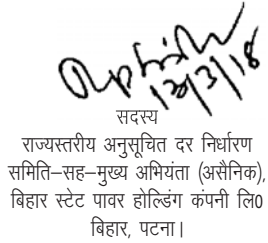 12/3/18
सदस्य
राज्यस्तरीय अनुसूचित दर निर्धारण
समिति–सह–मुख्य अभियंता (असैनिक),
बिहार स्टेट पावर होल्डिंग कंपनी लि0
बिहार, पटना।